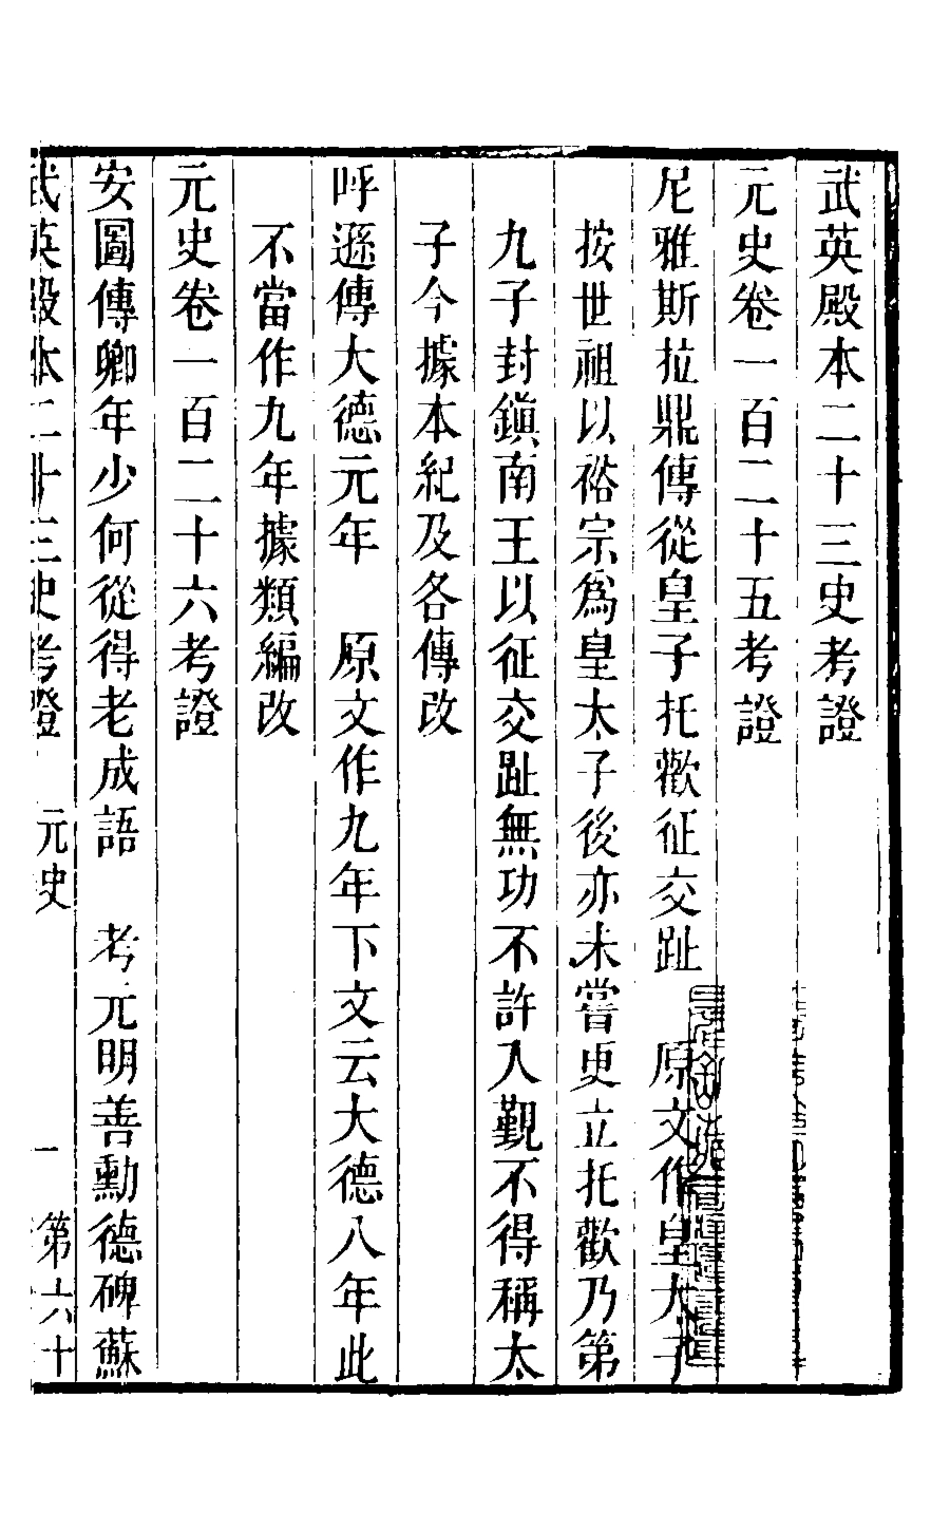 武英殿本二十三史考證
元史卷一百二十五考證
尼雅斯拉鼎傳從皇子托歡征交趾　原文作皇太子
按世祖以裕宗爲皇太子後亦未嘗更立托歡乃第
九子封鎮南王以征交趾無功不許入覲不得稱太
子今據本紀及各傳改
呼遜傳大德元年　原文作九年下文云大德八年此
不當作九年據類編改
元史卷一百二十六考證
安圖傳卿年少何從得老成語　考元明善勳德碑蘇
武英殿本二十三史考證　元史　一　第六十